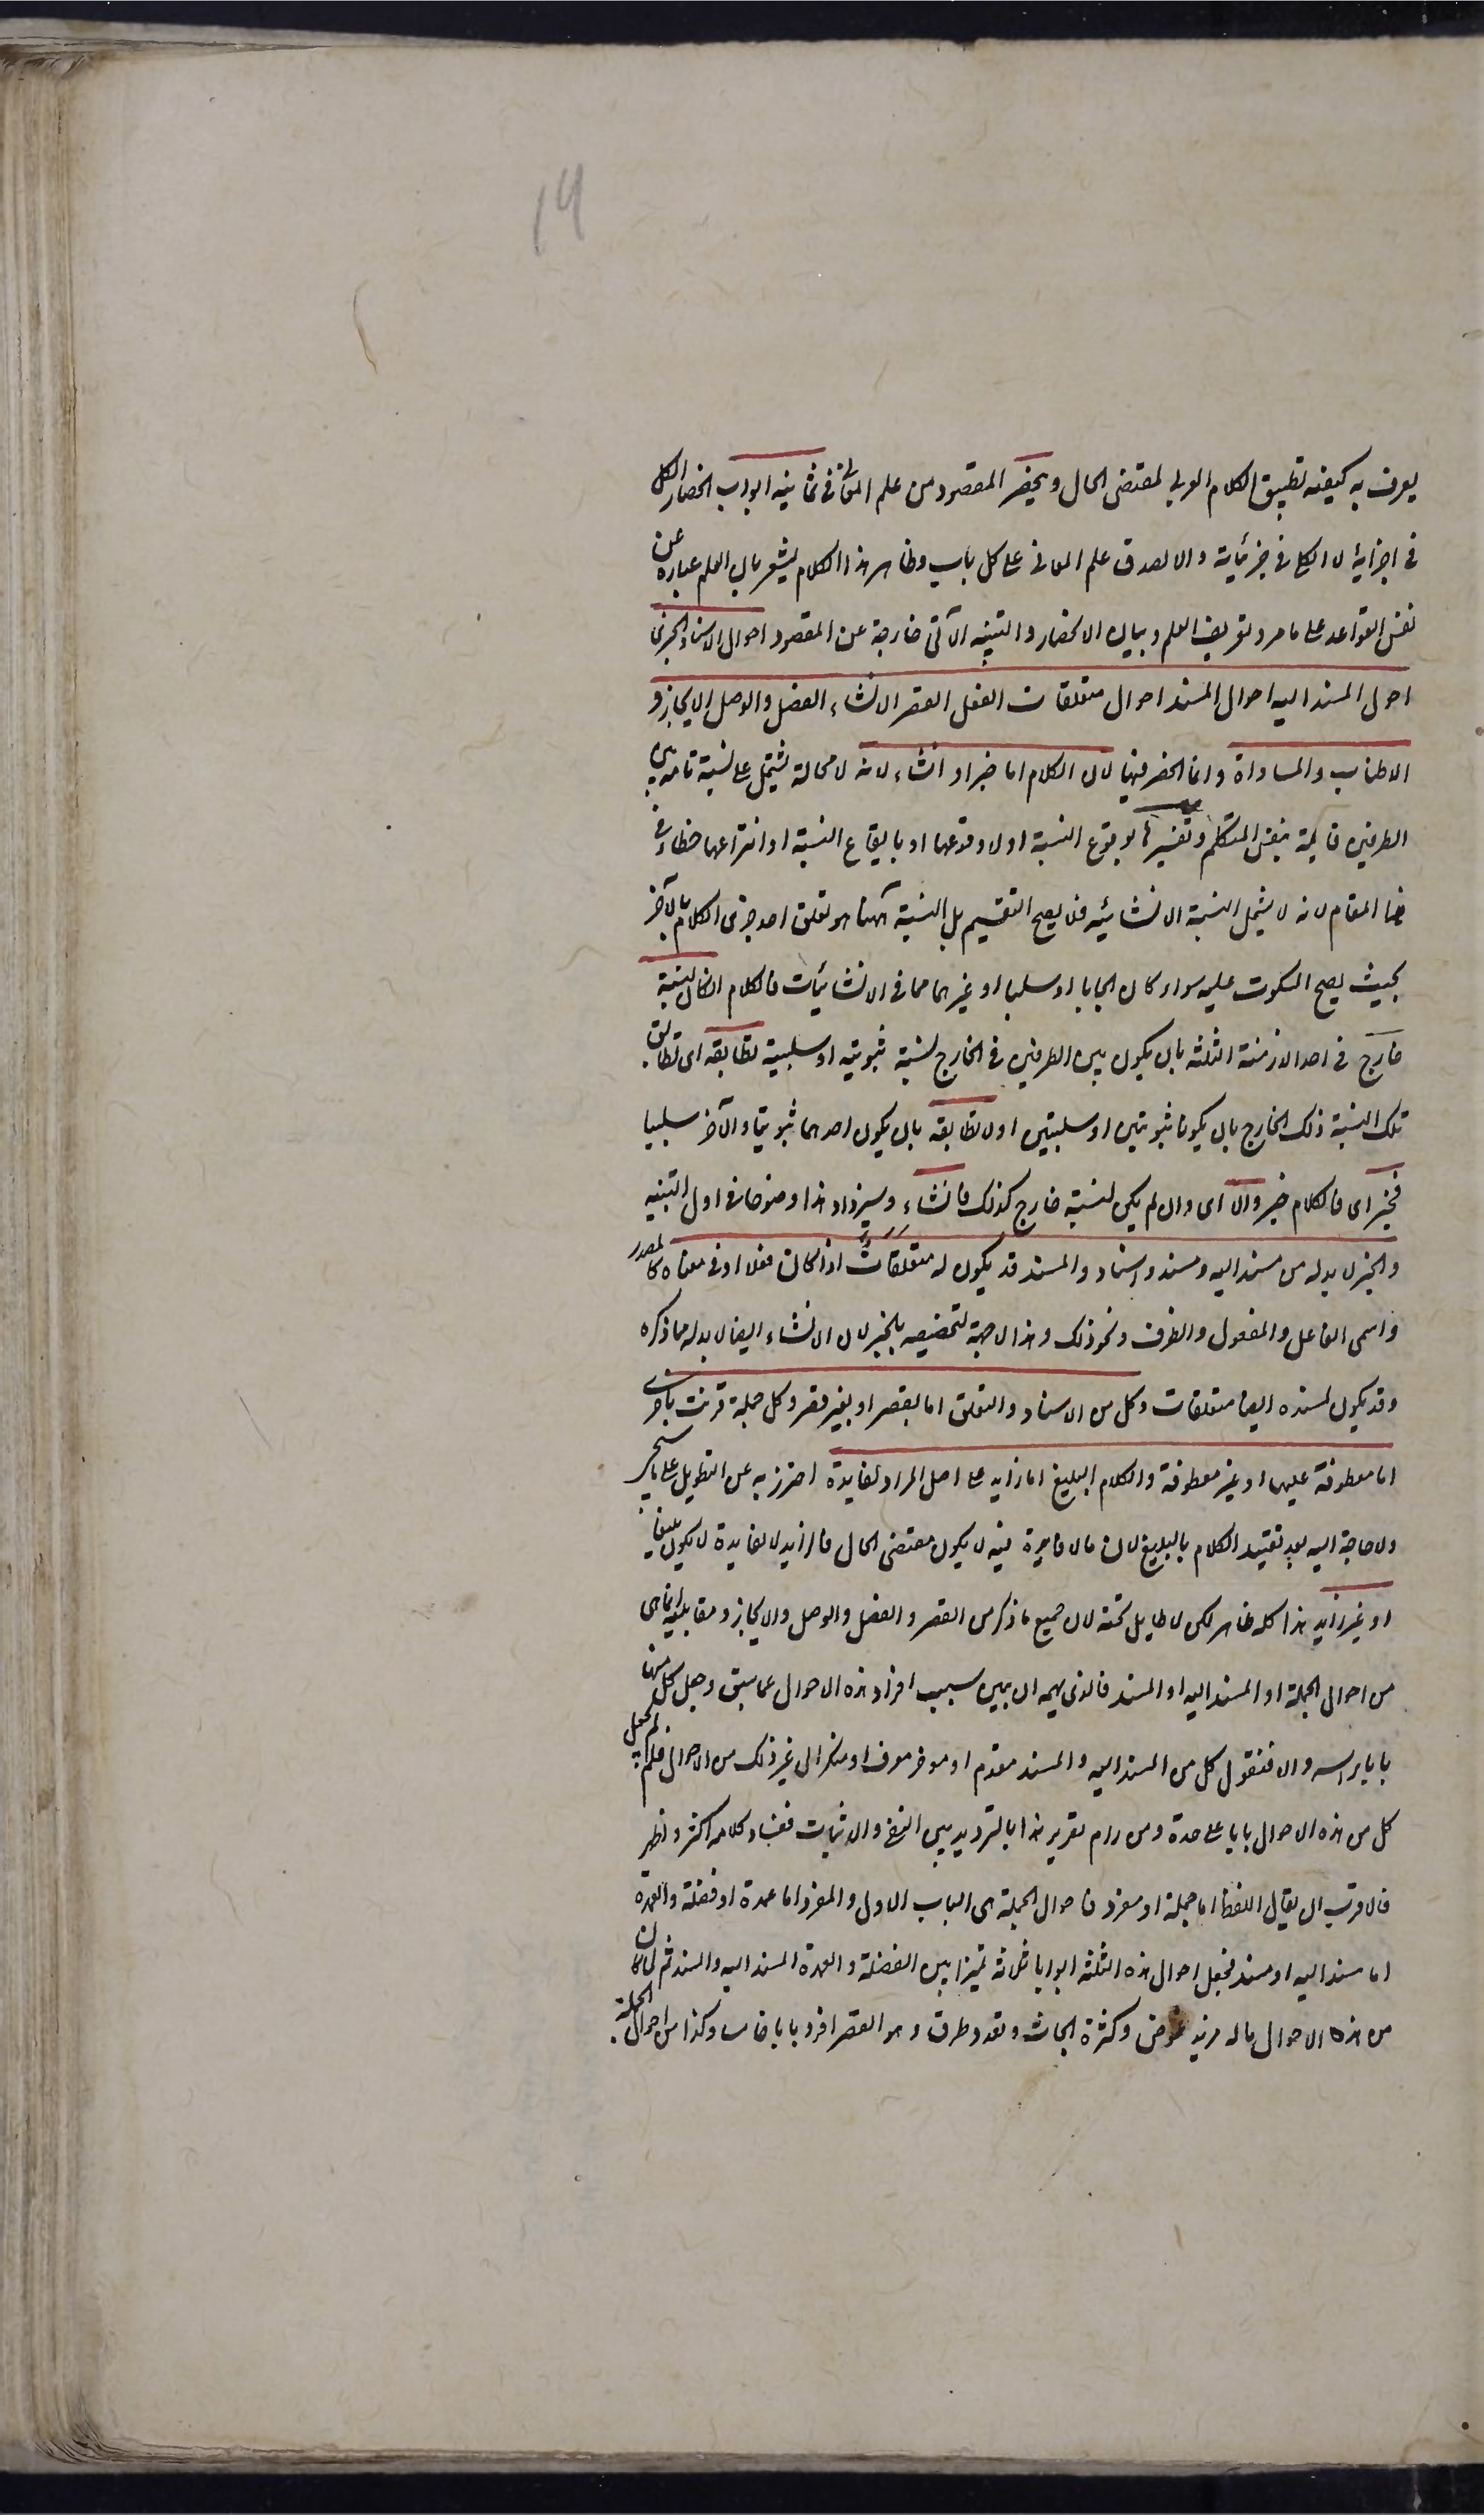 14
يعرف به كيفية تطبيق الكلام العربى لمقتضى الحال وينحصر المقصود من علم المعانى فى ثمانية ابواب انحصار الكل
فى اجزائه لا الكلى فى جزئياته والا لصدق علم المعانى على كل باب وظاهر هذا الكلام يشعر بان العلم عبارة عن
نفس القواعد على ما مر وتعريف العلم وبيان الانحصار والتنبيه الآتى خارجة عن المقصود احوال الاسناد الخبرى
احوال المسند اليه احوال المسند احوال متعلقات الفعل القصر الانشاء الفصل والوصل الايجاز و
الاطناب والمساواة وانما انحصر فيها لان الكلام اما خبر او انشاء لانه لا محالة يشتمل على نسبة تامة بين
الطرفين قايمة بنفس المتكلم وتفسيرها بوقوع النسبة او لا وقوعها او بايقاع النسبة او انتزاعها خطاء فى
هذا المقام لانه لا يشمل النسبة الانشائيه فلا يصح التقسيم بل النسبة ههنا هو تعلق احد جزئى الكلام بالآخر
بحيث يصح السكوت عليه سواء كان ايجابا او سلبا او غيرهما مما فى الانشائيات فالكلام ان كان لنسبته
خارج فى احد الازمنة الثلثه بان يكون بين الطرفين فى الخارج نسبة ثبوتيه او سلبية تطابقه اى تطابق
تلك النسبة ذلك الخارج بان يكونا ثبوتيين او سلبيتين او لا تطابقه بان يكون احدهما ثبوتيا والآخر سلبيا
فخبر اى فالكلام خبر والا اى وان لم يكن لنسبته خارج كذلك فانشاء وسيزداد هذا وضوحا فى اول التنبيه
والخبر لا بد له من مسند اليه ومسند واسناد والمسند قد يكون له متعلقات اذا كان فعلا او فى معناه كالمصدر
واسمى الفاعل والمفعول والظرف ونحو ذلك وهذا لا جهة لتخصيصه بالخبر لان الانشاء ايضا لا بد له مما ذكره
وقد يكون لمسنده ايضا متعلقات وكل من الاسناد والتعلق اما بقصر او بغير قصر وكل جملة قرنت باخرى
اما معطوفة عليها او غير معطوفة والكلام البليغ اما زايد على اصل المراد لفايدة احترز به عن التطويل على ما سيجئ
ولا حاجة اليه بعد تقييد الكلام بالبليغ لان ما لا فايدة فيه لا يكون مقتضى الحال فالزايد لا لفايدة لا يكون بليغا
او غير زايد هذا كله ظاهر لكن لا طايل تحته لان جميع ما ذكر من القصر والفصل والوصل والايجاز ومقابليه انما هى
من احوال الجملة او المسند اليه او المسند فالذى يهمه ان يبين سبب افراد هذه الاحوال عما سبق وجعل كل منها
بابا براسه والا فنقول كل من المسند اليه والمسند مقدم او مؤخر معرف او منكر الى غير ذلك من الاحوال فلم لم يجعل
كل من هذه الاحوال بابا على حدة ومن رام تقرير هذا بالترديد بين النفى والاثبات ففساد كلامه اكثر واظهر
فالاقرب ان يقال اللفظ اما جملة او مفرد فاحوال الجملة هى الباب الاول والمفرد اما عمدة او فضلة والعمدة
اما مسند اليه او مسند فجعل احوال هذه الثلثه ابوابا ثلاثه تميزا بين الفضلة والعمدة المسند اليه والمسند ثم لما كان
من هذه الاحوال ما له مزيد غموض وكثرة ابحاث وتعدد طرق وهو القصر افرد بابا خامسا وكذا من احوال الجملة